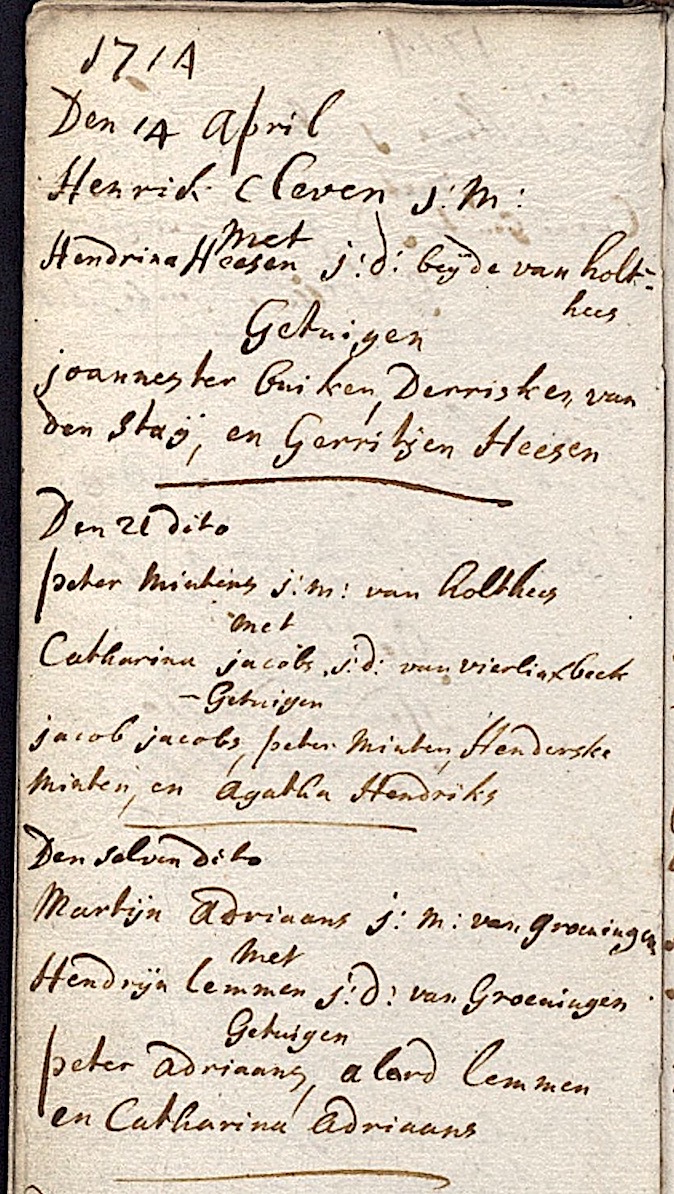 1714
Den 14 april
Henrick Cleven j:m:
met
Hendrina Heesen j:d: beÿde van holt=
hees
Getuigen
joannes ter buiken, Derrisken van
den Staÿ, en Gerritjen Heesen
Den 21 dito
peter Mintens j:m: van holthees
met
Catharina jacobs j:d: van vierlinxbeek
Getuigen
jacob jacobs, peter Minten, Henderske
Minten, en Agatha Hendriks
Den selven dito
Martijn Adriaans j:m: van groeningen
Met
Hendrijn Lemmen j:d: van Groeningen
Getuigen
peter Adriaans, alard Lemmen
en Catharina Adriaans